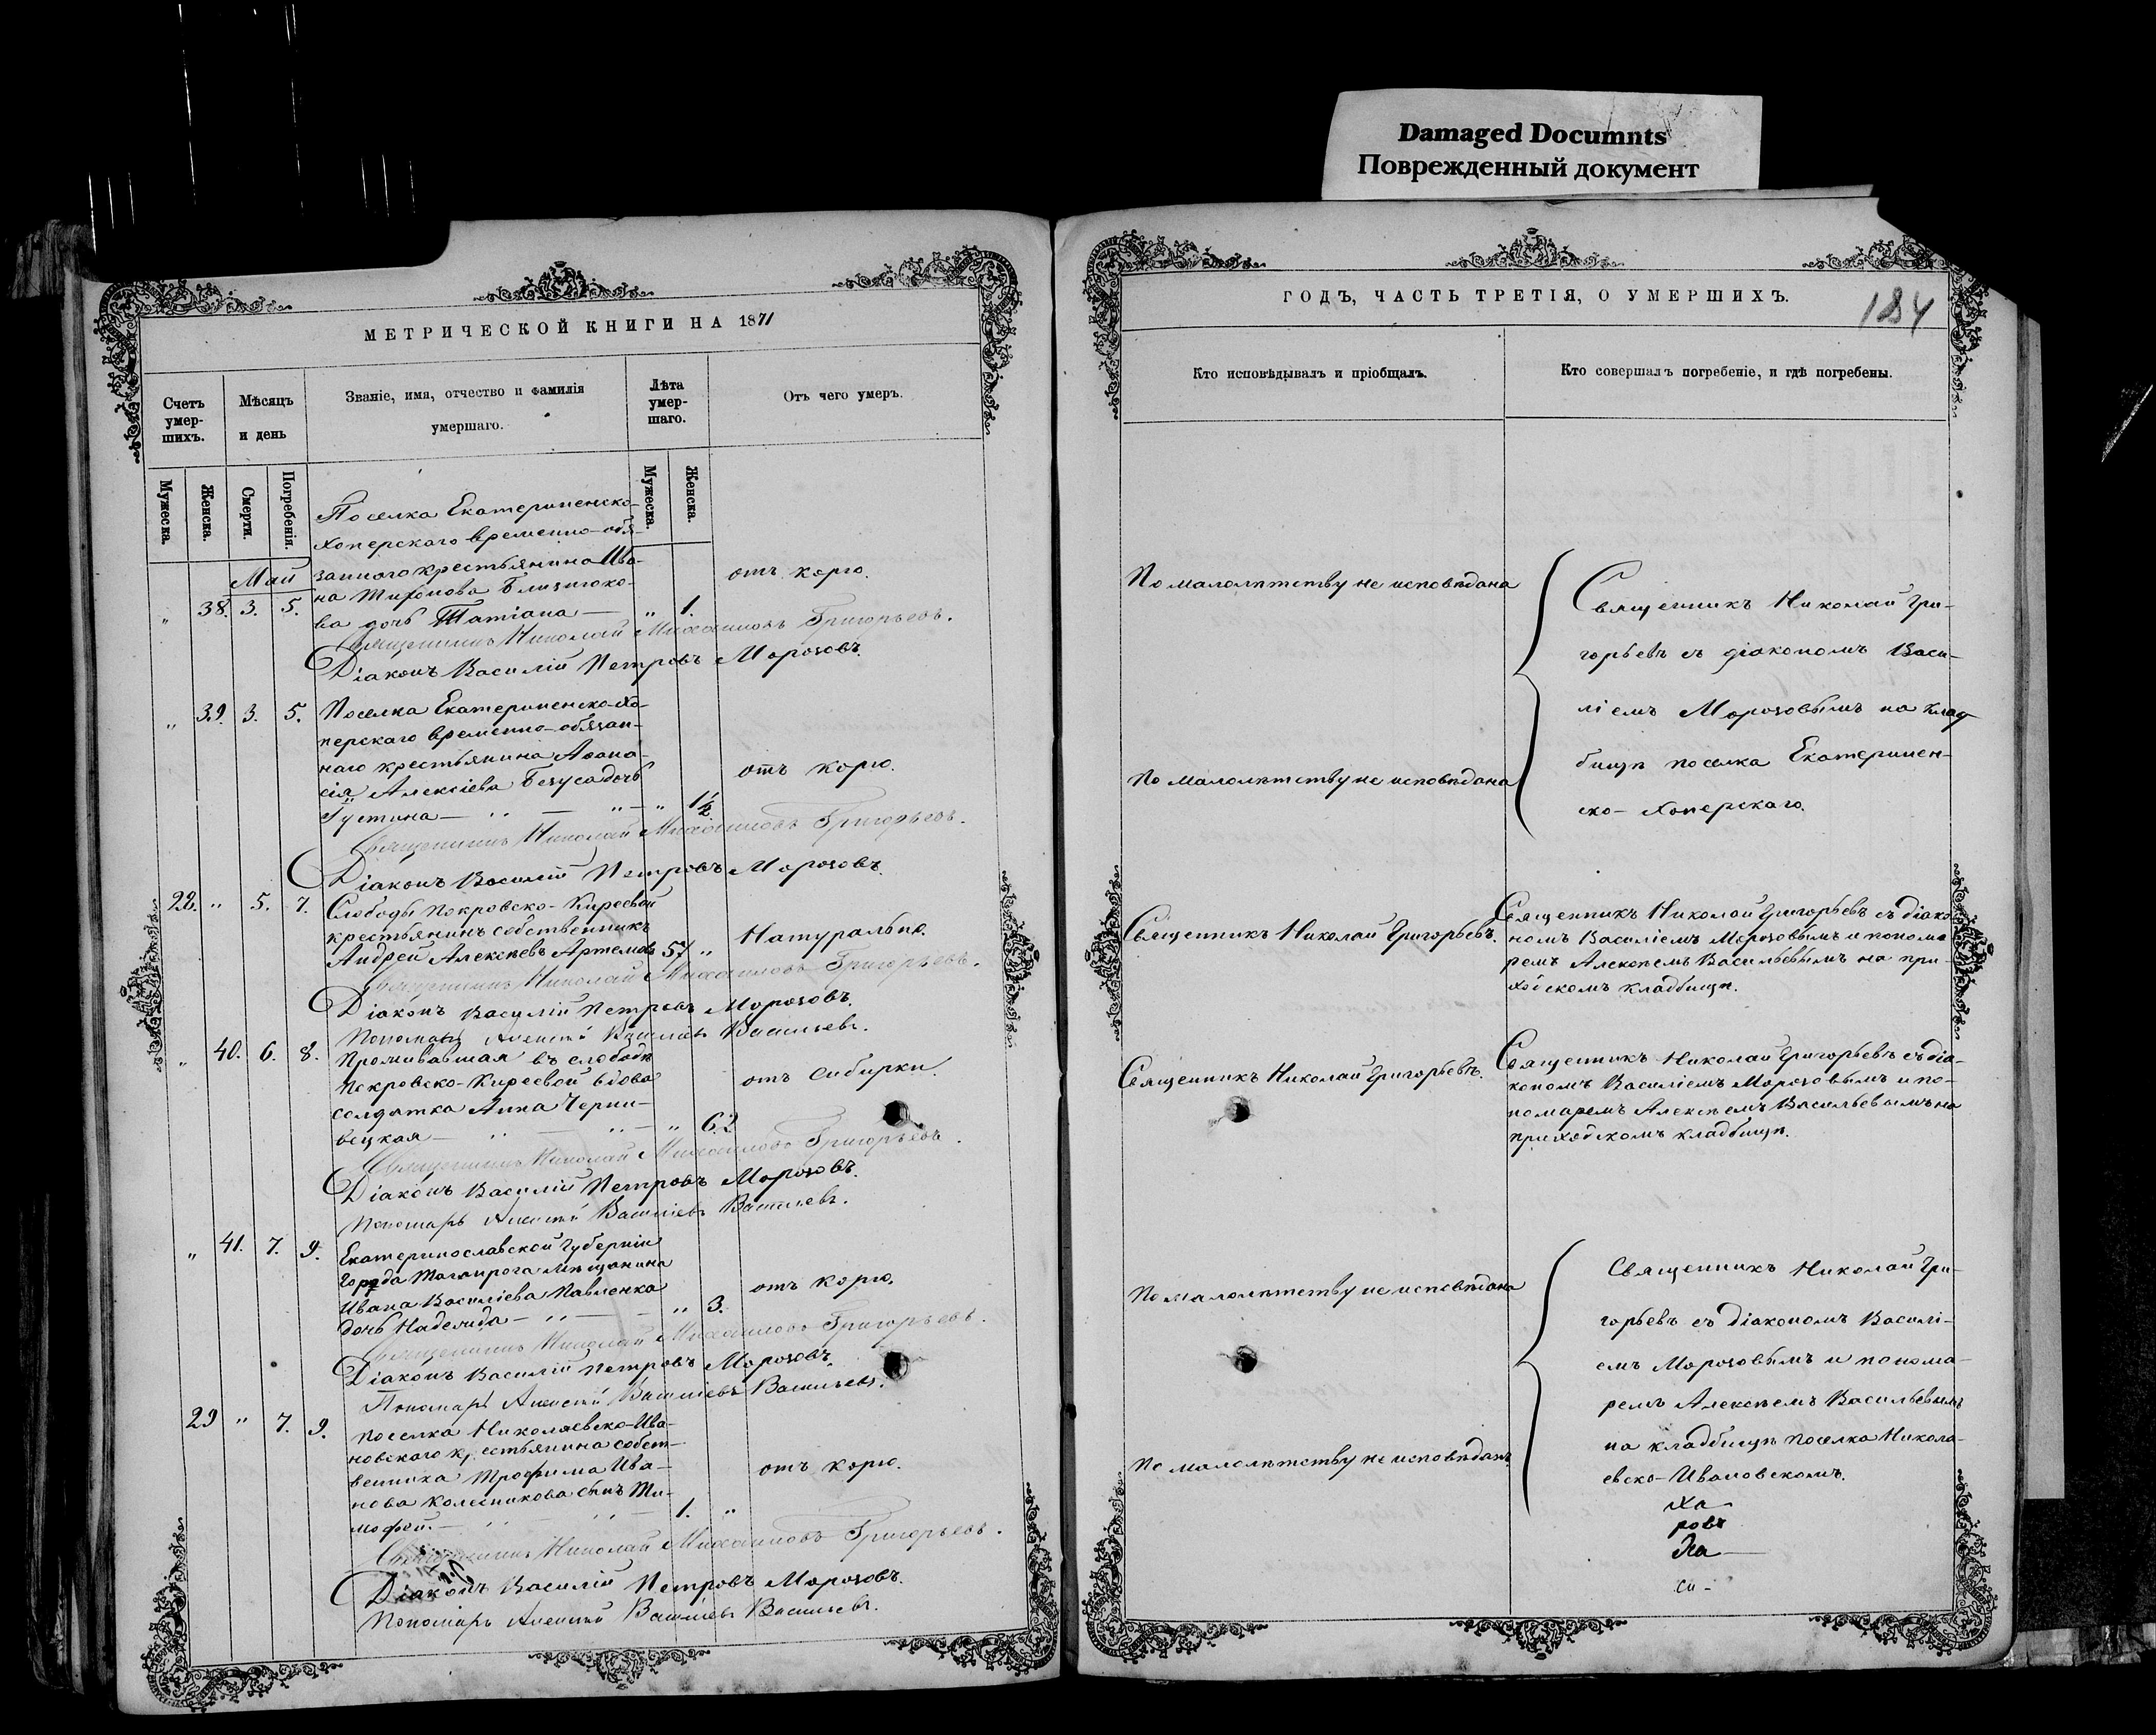 Damaged Documnts
Поврежденный документ
МЕТРИЧЕСКОЙ КНИГИ НА 1871
Счетъ умер-шихъ.
Мѣсяцъ и день
Званіе, имя, отчество и фамилія умершаго.
Лѣта умер-шаго.
Отъ чего умеръ.
Мужеска.
Женска.
Смерти.
Погребенія.
Мужеска.
Женска.
Май
Поселка Екатериненско-
Хоперскаго временно-обя-
заннаго крестьянина Ива-
на Тихонова Близнюко-
„ 38. 3. 5. ва дочь Татіана — „ 1. отъ корю.
Священникъ Николай Михаиловъ Григорьевъ.
Діаконъ Василій Петровъ Морозовъ.
„ 39. 3. 5. Поселка Екатериненско-Хо-
перскаго временно-обязан-
наго крестьянина Аѳана-
сія Алексіева Безуса дочь
Іустина — „ — „ — „ 1½ отъ корю.
Священникъ Николай Михаиловъ Григорьевъ.
Діаконъ Василій Петровъ Морозовъ.
28. „ 5. 7. Слободы Покровско-Киреевой
крестьянинъ собственникъ
Андрей Алексѣевъ Артемовъ 57 „ Натурально.
Священникъ Николай Михаиловъ Григорьевъ.
Діаконъ Василій Петровъ Морозовъ.
Пономарь Алексѣй Василіевъ Васильевъ.
„ 40. 6. 8. Проживавшая въ слободѣ
Покровско-Киреевой вдова
солдатка Анна Черни-
вецкая — „ — „ — „ 62 отъ сибирки.
Священникъ Николай Михаиловъ Григорьевъ.
Діаконъ Василій Петровъ Морозовъ.
Пономарь Алексѣй Василіевъ Васильевъ.
„ 41. 7. 9. Екатеринославской Губерніи
города Таганрога мѣщанина
Ивана Василіева Павленка
дочь Надежда — „ — „ 3. отъ корю.
Священникъ Николай Михаиловъ Григорьевъ.
Діаконъ Василій Петровъ Морозовъ.
Пономарь Алексѣй Василіевъ Васильевъ.
29 „ 7. 9. поселка Николаевско-Ива-
новскаго крестьянина собст-
венника Трофима Ива-
нова Колесникова сынъ Ти-
мофей. — „ — „ — 1. „ отъ корю.
Священникъ Николай Михаиловъ Григорьевъ.
Діаконъ Василій Петровъ Морозовъ.
Пономарь Алексѣй Василіевъ Васильевъ.
ГОДЪ, ЧАСТЬ ТРЕТІЯ, О УМЕРШИХЪ.
184
Кто исповѣдывалъ и пріобщалъ.
Кто совершалъ погребеніе, и гдѣ погребены.
По малолѣтству не исповѣдана
По малолѣтству не исповѣдана
Священникъ Николай Гри-
горьевъ съ діакономъ Васи-
ліемъ Морозовымъ на клад-
бищѣ поселка Екатеринен-
ско-Хоперскаго.
Священникъ Николай Григорьевъ.
Священникъ Николай Григорьевъ съ діако-
номъ Василіемъ Морозовымъ и понома-
ремъ Алексѣемъ Васильевымъ на при-
ходскомъ кладбищѣ.
Священникъ Николай Григорьевъ.
Священникъ Николай Григорьевъ съ діа-
кономъ Василіемъ Морозовымъ и по-
номаремъ Алексѣемъ Васильевымъ на
приходскомъ кладбищѣ.
По малолѣтству не исповѣдана
По малолѣтству не исповѣданъ
Священникъ Николай Гри-
горьевъ съ діакономъ Василі-
емъ Морозовымъ и понома-
ремъ Алексѣемъ Васильевымъ
на кладбищѣ поселка Никола-
евско-Ивановскомъ.
Ха
ровъ
На —
си -